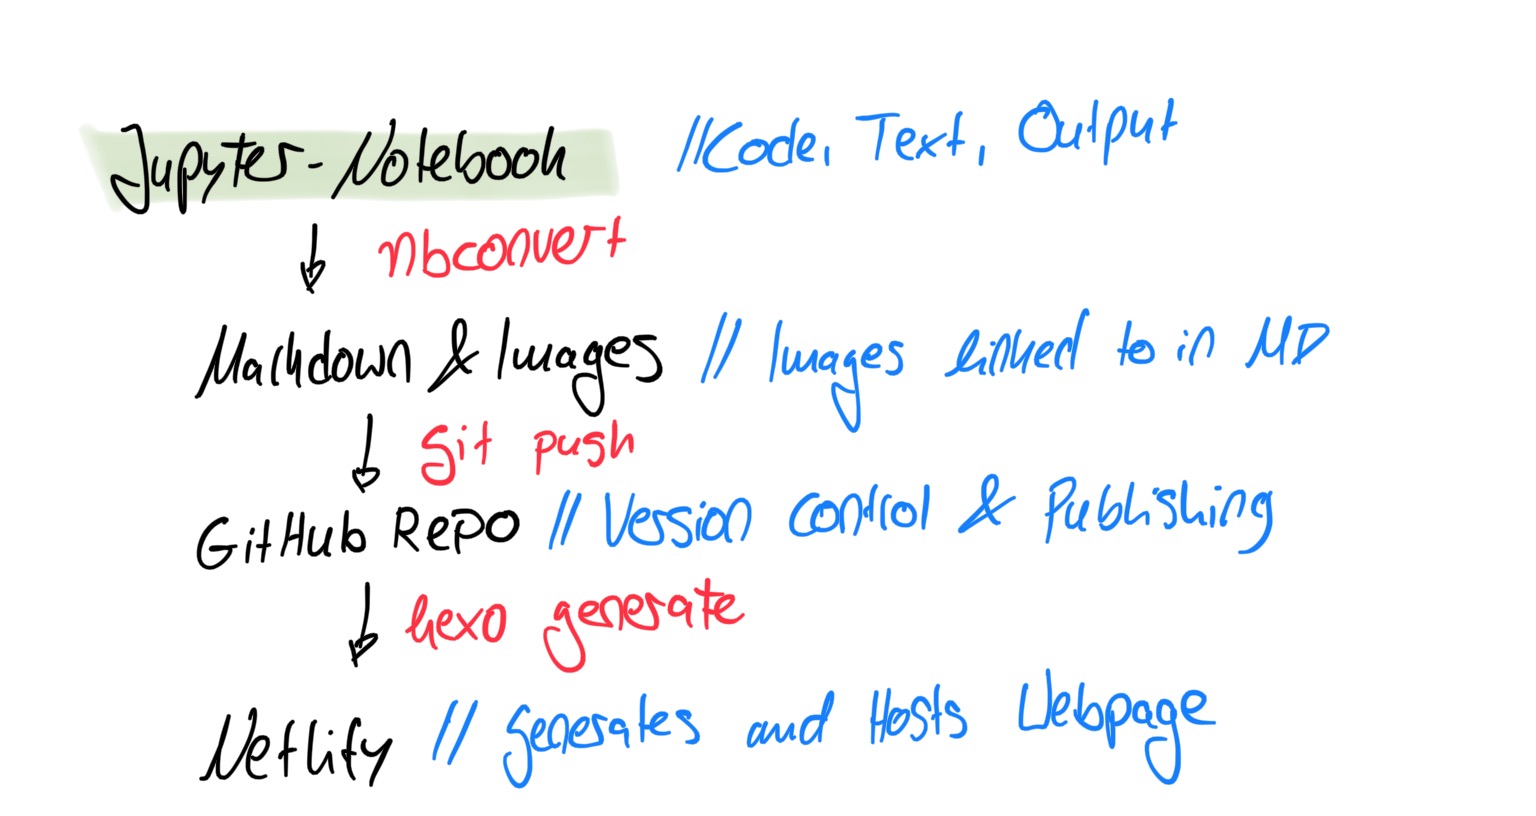 Jupyter-Notebook //Code, Text, Output
nbconvert
Markdown & Images // Images linked to in MD
git push
GitHub Repo // Version control & Publishing
hexo generate
Netlify // generates and Hosts Webpage